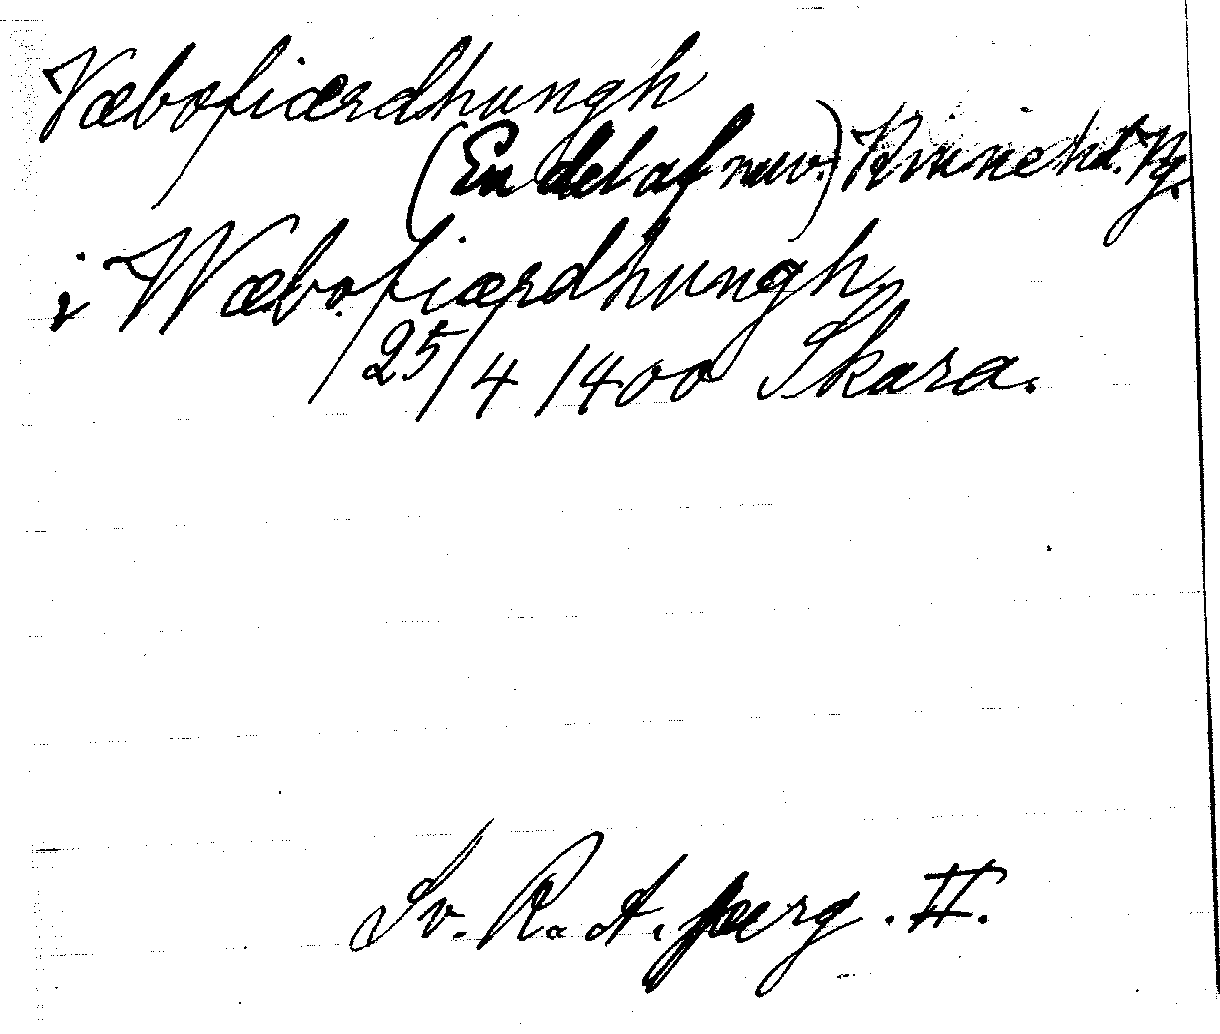 Væbofiærdhungh
(En del af nuv.) Kinnehd. Vg.
i Wæbofiærdhungh
25/4 1400 Skara.
Sv. R. A. perg. II.